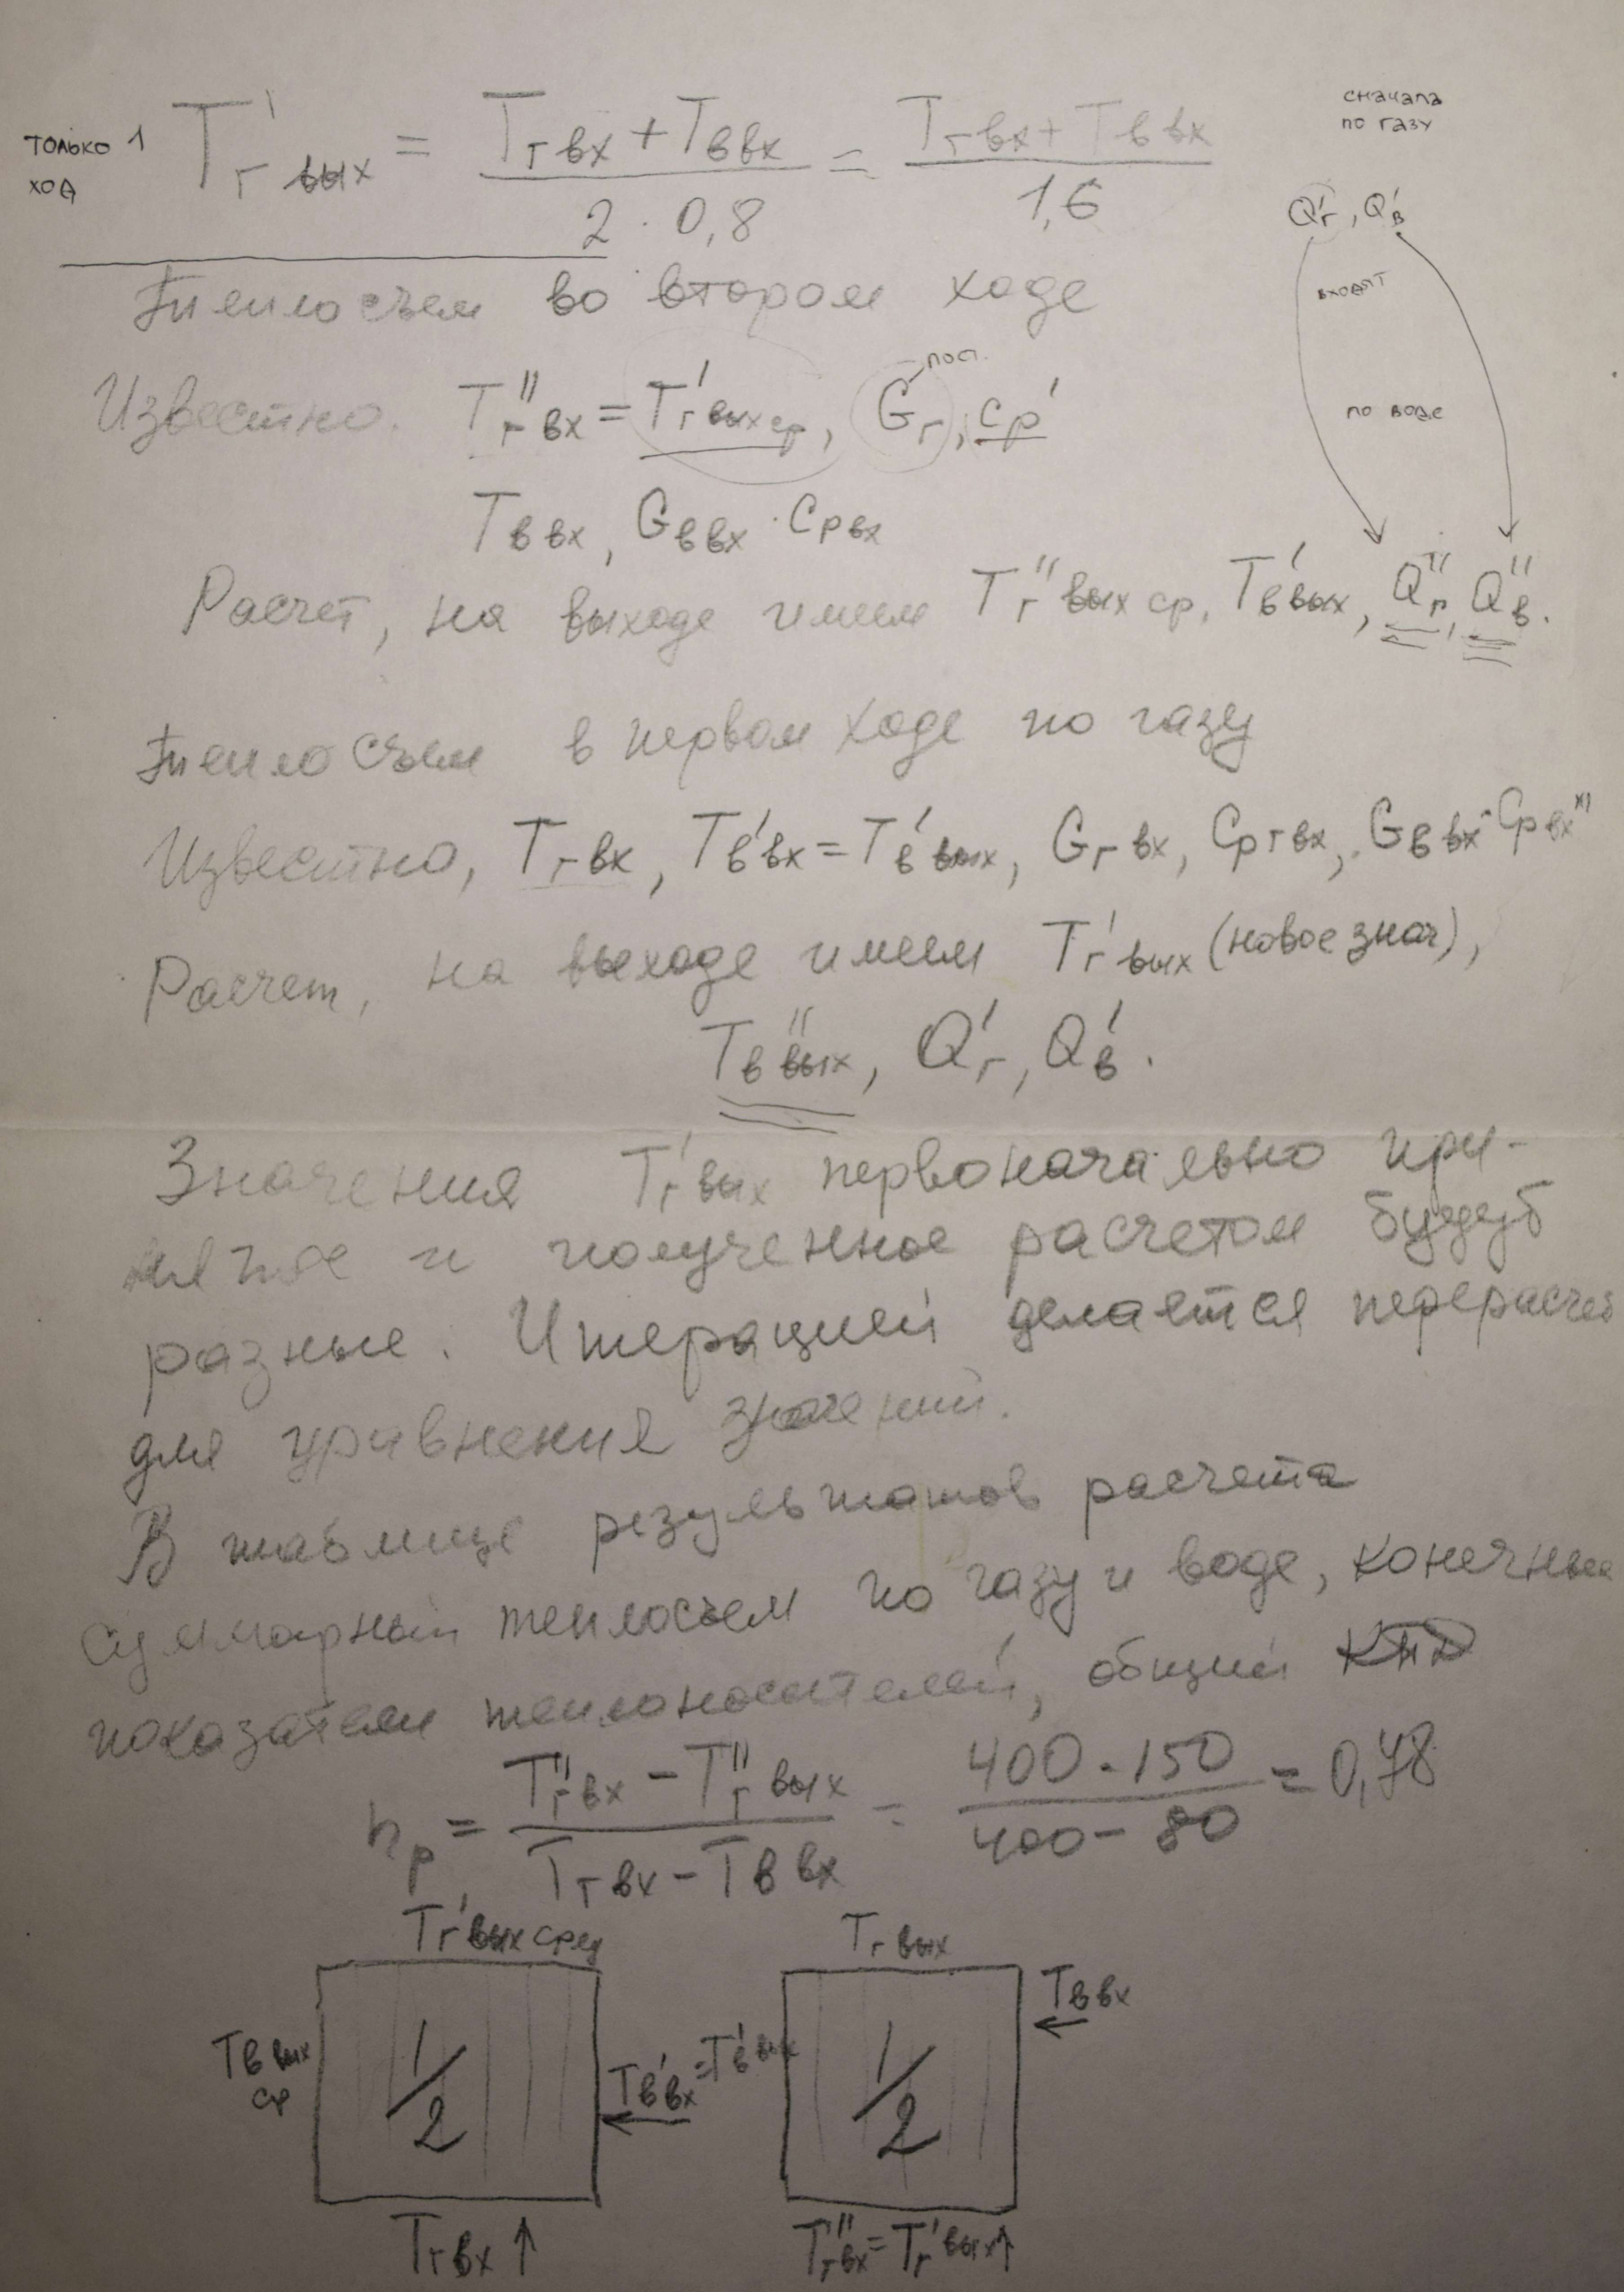 сначала
по газу
только 1
ход
T'г вых = (Tг вх + Tв вх) / (2 · 0,8) = (Tг вх + Tв вх) / 1,6
Q'г, Q'в
Теплосъем во втором ходе
входят
пост.
Известно. T''г вх = T'г вых ср, Gг, cp'
по воде
Tв вх, Gв вх · Cp вх
Расчет, на выходе имеем T''г вых ср, T'в вых, Q''г, Q''в.
Теплосъем в первом ходе по газу
Известно, Tг вх, T'в вх = T'в вых, Gг вх, Cp г вх, Gв вх · Cp вх
Расчет, на выходе имеем T'г вых (новое знач),
T''в вых, Q'г, Q'в.
Значения T'г вых первоначально при-
нятое и полученное расчетом будут
разные. Итерацией делается перерасчет
для уравнения значений.
В таблице результатов расчета
суммарный теплосъем по газу и воде, конечные
показатели теплоносителей, общий
hр = (T''г вх - T''г вых) / (Tг вх - Tв вх) = (400 - 150) / (400 - 80) = 0,78
T'г вых сред
Tг вых
Tв вх
Tв вых
ср
1/2
T'в вх = T'в вых
1/2
Tг вх
T''г вх = T'г вых